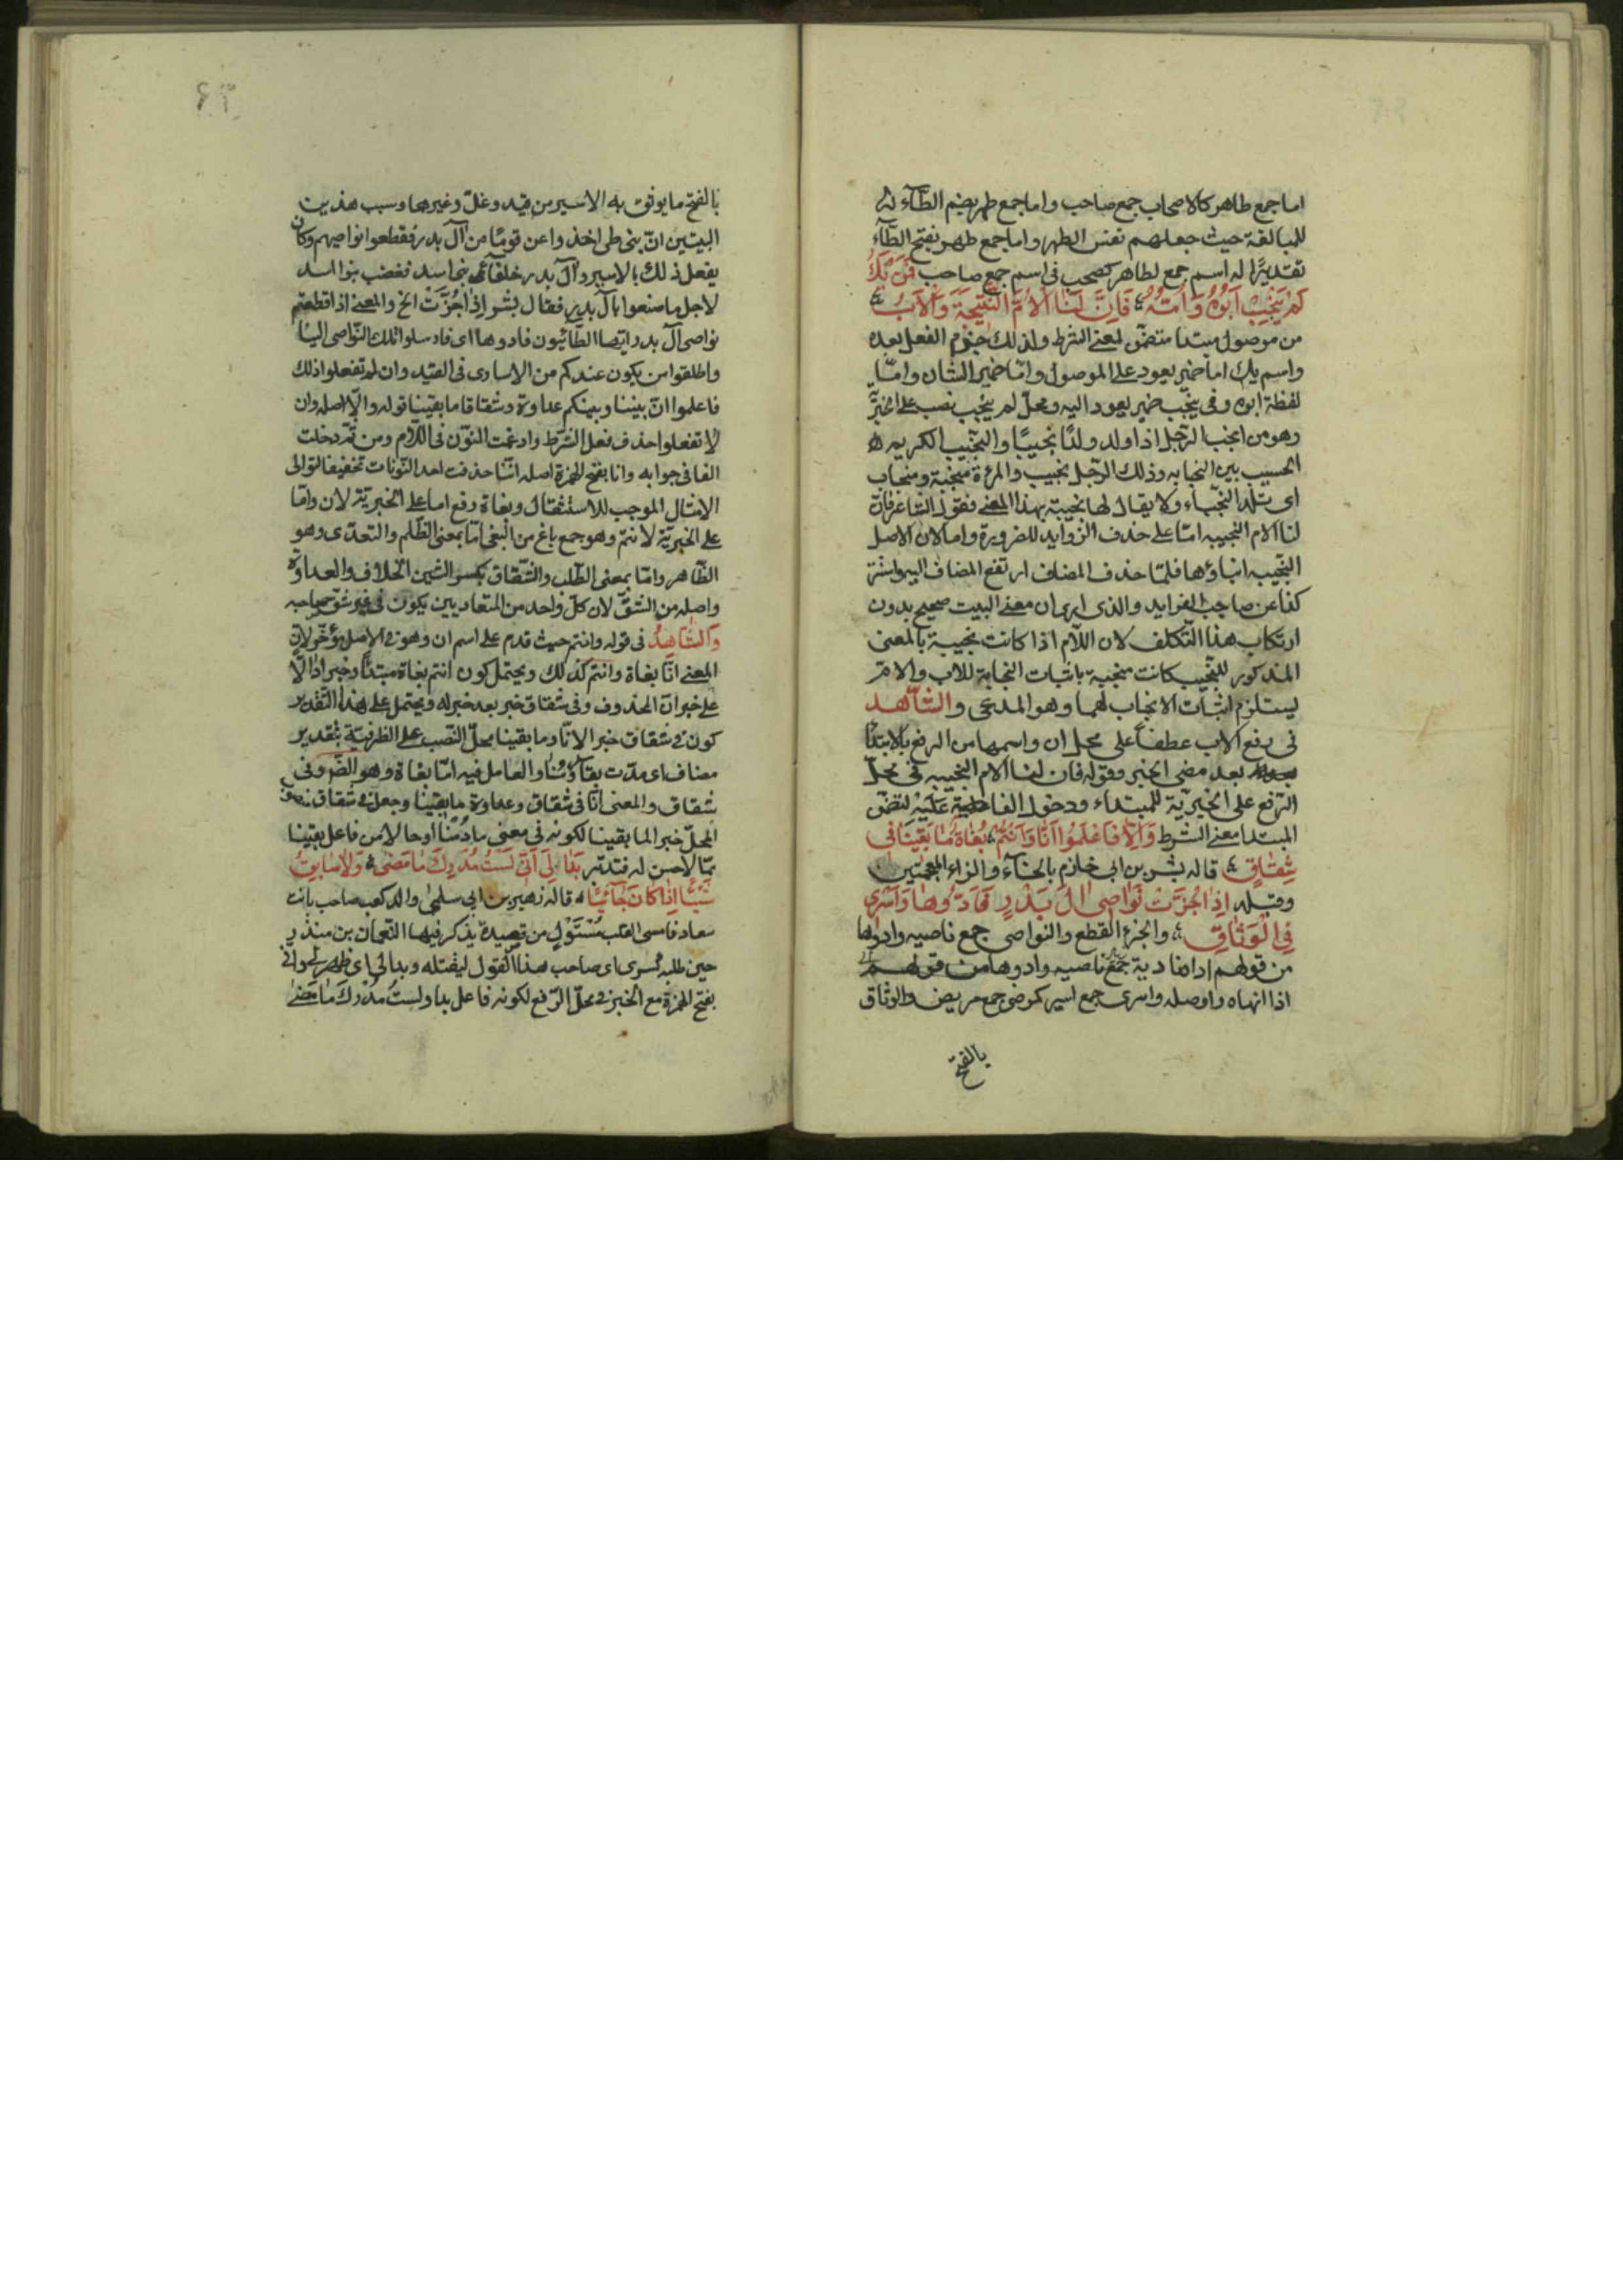 اما جمع طاهر كالاصحاب جمع صاحب واما جمع طهر بضم الطآء
للمبالغة حيث جعلهم نفس الطهر واما جمع طهر بفتح الطآء
تقديرًا له اسم جمع لطاهر كصحب فى اسم جمع صاحب فَمَنْ يَكُ
لَمْ يُنْجِبْ اَبُوهُ وَاُمُّهُ فَاِنَّ لَنَا الْاُمَّ النَّجِيبَةَ وَالْاَبُ
من موصول مبتدا متضمّن لمعنى الشرط ولذلك جزم الفعل بعده
واسم يك اما ضمير يعود على الموصول وامّا ضمير الشان وامّا
لفظة ابوه وفى ينجب ضمير يعود اليه ومحلّ لم ينجب نصب على الخبريّة
وهو من انجب الرّجل اذا ولد ولدًا نجيبًا والنجّيب الكريم
الحسيب بين النجابه وذلك الرّجل نجيب والمرءة منجبة ومنجاب
اى تلد النجّباء ولا يقال لها نجيبة بهذا المعنى فقول الشاعر فان
لنا الام النجيبه امّا على حذف الزوايد للضرورة واما لان الاصل
النجّيبه ابناؤها فلمّا حذف المضاف ارتفع المضاف اليه واستتر
كذا عن صاحب الفرايد والذى ارى ان معنى البيت صحيح بدون
ارتكاب هذا التّكلف لان اللآم اذا كانت نجيبة بالمعنى
المذكور للنجّيب كانت منجبة باثبات النجابة للاب والامّ
يستلزم اثبات الانجاب لهما وهو المدعى والشّاهد
فى رفع الاب عطفاً على محل ان واسمها من الرفع بالابتدا
بعد مضى الخبر وقوله فان لنا الام النجيبه فى محلّ
الرّفع على الخبريّة للمبتداء ودخول الفا عَلَيْهِ لتضمّن
المبتدا معنى الشرط وَاِلَّا فَاعْلَمُوا اَنَّا وَاَنْتُمْ بُغَاةٌ مَا بَقِينَا فى
شِقَاقٍ قاله بشر بن ابى خازم بالخآء والزاء المعجمتين
وقبله اِذَا جُزَّتْ نَوَاصِى آلِ بَدْرٍ فَاَدُّوهَا وَاَسْرَى
فِى الْوَثَاقِ والجزء القطع والنواصى جمع ناصيه وادوها
من قولهم اداها دية جمع ناصيه وادوها من قولهم
اذا انهاه واوصله واسرى جمع اسير كمرضى جمع مريض والوثاق
بالفتح
بالفتح ما يوثق به الاسير من قيد وغلّ وغيرهما وسبب هذين
البيتين انّ بنى طى اخذوا عن قومًا من آل بدر فقطعوا نواصيهم وكان
يفعل ذلك بالاسير وآل بدر خلفآئى بنى اسد فغضب بنوا اسد
لاجل ما صنعوا بآل بدر فقال بشر اِذَا جُزَّتْ الخ والمعنى اذا قطعتم
نواصى آل بدر ايّها الطآئيّون فادوها اى فارسلوا تلك النّواصى الينا
واطلقوا من يكون عندكم من الاسارى فى القيد وان لم تفعلوا ذلك
فاعلموا انّ بيننا وبينكم عداوة وشقاقا ما بقينا قوله والّا اصله وان
لا تفعلوا حذف فعل الشّرط وادغمت النوّن فى اللّام ومن ثمّ دخلت
الفا فى جوابه وانا بفتح الهمزة اصله انّنا حذفت احد النّونات تخفيفا لتوالى
الامثال الموجب للاستثقال وبغاة رفع اما على الخبريّة لان وامّا
على الخبريّة لانتم وهو جمع باغ من البغى امّا بمعنى الظّلم والتعدّى وهو
الظّاهر وامّا بمعنى الطّلب والشّقاق بكسر الشين الخلاف والعداوة
واصله من الشقّ لان كلّ واحد من المتعاديين يكون فى غير شقّ صاحبه
والشّاهِدُ فى قوله وانتم حيث قدم على اسم ان وهو فى الاصل مؤخّر لانّ
المعنى انّا بغاة وانتم كذلك ويحتمل كون انتم بغاة مبتدًا وخبرا دالّا
على خبر انّ المحذوف وفى شقاق خبر بعد خبر له ويحتمل على هذا التّقدير
كون فى شقاق خبر الانّا وما بقينا محلّ النّصب على الظرفيّة بتقدير
مضاف اى مدّت بقآؤنا والعامل فيه امّا بغاة وهو الضّروفى
شقاق والمعنى انّا فى شقاق وعداوة ما بقينا وجعل فى شقاق نصب
المحلّ خبر الما بقينا لكونه فى معنى ما دمنا او حالا من فاعل بقينا
ممّا لا حسن له فتدبّر بَدَا لِىَ اَنِّى لَسْتُ مُدْرِكَ مَا مَضَى وَلَا سَابِقٍ
شَيْئًا اِذَا كَانَ جَآئِيًا قاله زهير بن ابى سلمى والد كعب صاحب بانت
سعاد فامسى القلب مَتْبُول من قصيدة يذكر فيها النّعمان بن منذر
حين طلبه كسرى اى صاحب هذا القول ليقتله وبدا لى اى ظهر لى وانّى
بفتح الهمزة مع الخبر فى محلّ الرّفع لكونه فاعل بدا ولستُ مُدْرِكَ مَا مَضَى